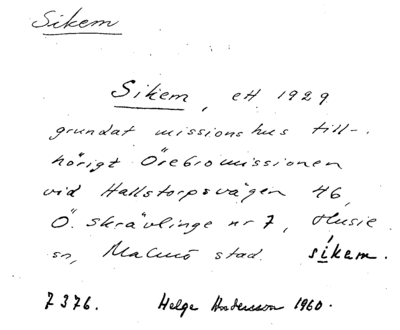 Sikem
Sikem, ett 1929
grundat missionshus till-
hörigt Örebromissionen
vid Hallstorpsvägen 46,
Ö. Skrävlinge nr 7, Husie
sn, Malmö stad. síkem.
7376. Helge Andersson 1960.